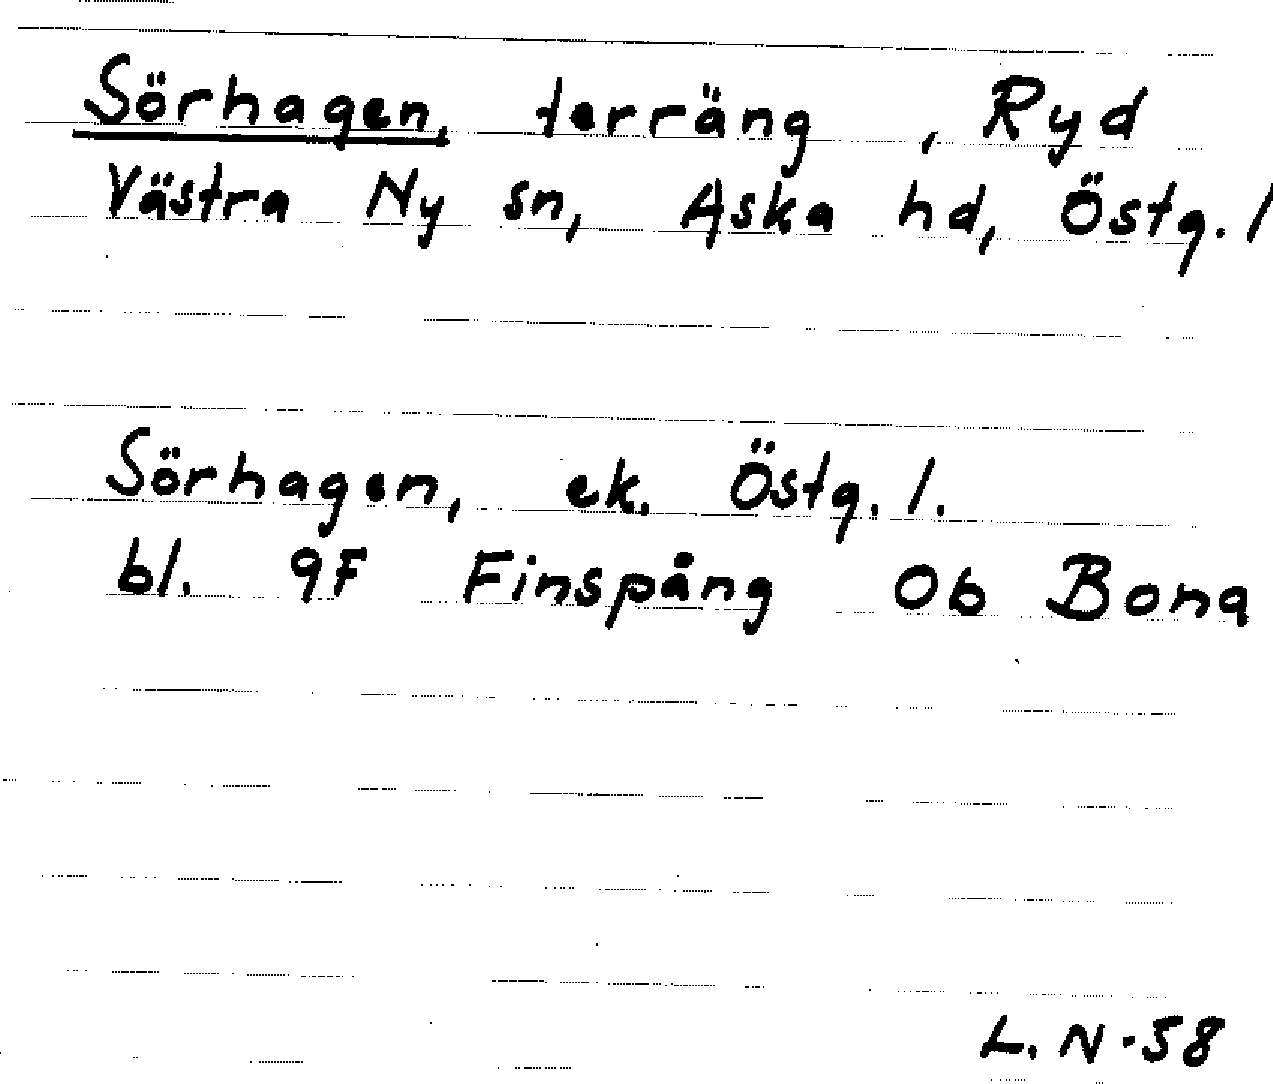 Sörhagen, terräng , Ryd
Västra Ny sn, Aska hd, Östg. l
Sörhagen, ek. Östg. l.
bl. 9F Finspång 0b Bona
L. N-58